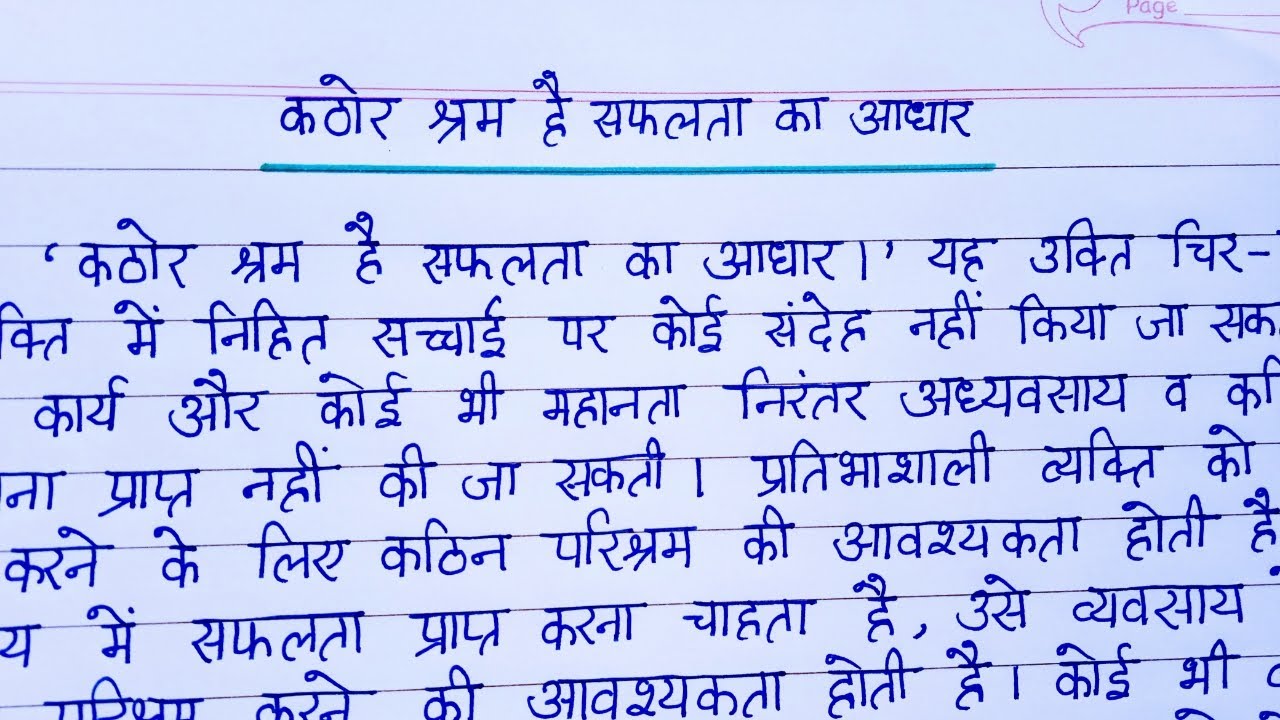 Page
कठोर श्रम है सफलता का आधार
‘कठोर श्रम है सफलता का आधार।’ यह उक्ति चिर-
क्ति में निहित सच्चाई पर कोई संदेह नहीं किया जा सक
कार्य और कोई भी महानता निरंतर अध्यवसाय व कठि
ना प्राप्त नहीं की जा सकती। प्रतिभाशाली व्यक्ति को
करने के लिए कठिन परिश्रम की आवश्यकता होती है
य में सफलता प्राप्त करना चाहता है, उसे व्यवसाय
परिश्रम करने की आवश्यकता होती है। कोई भी